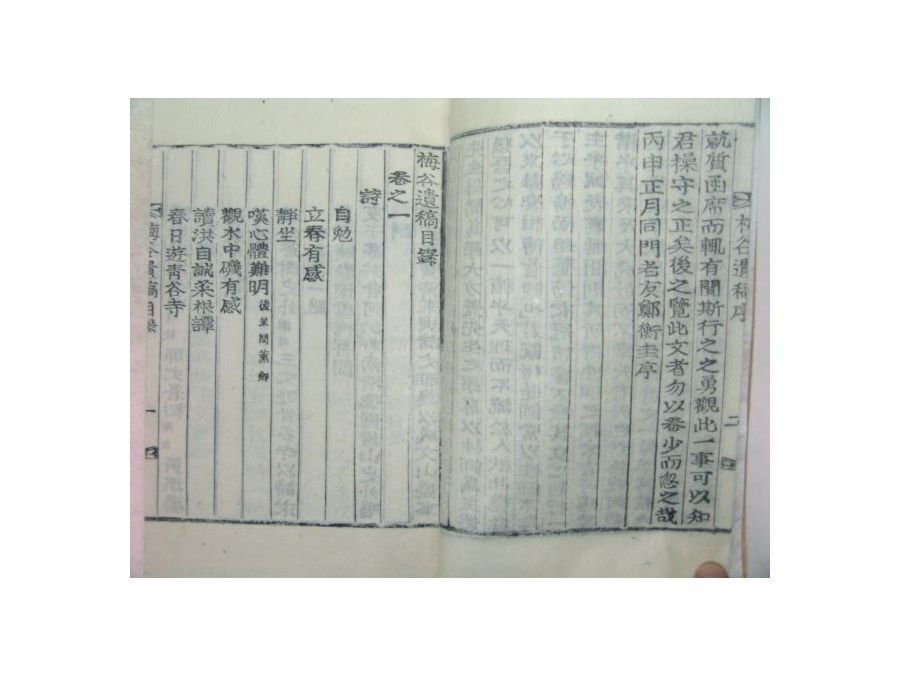 梅谷遺稿序
二
就質函席而輒有聞斯行之之勇觀此一事可以知
君操守之正矣後之覽此文者勿以卷少而忽之哉
丙申正月同門老友鄭衡圭序
梅谷遺稿目錄
卷之一
詩
自勉
立春有感
靜坐
嘆心體難明
觀水中磯有感
讀洪自誠菜根譚
春日遊靑谷寺
梅谷遺稿目錄
一